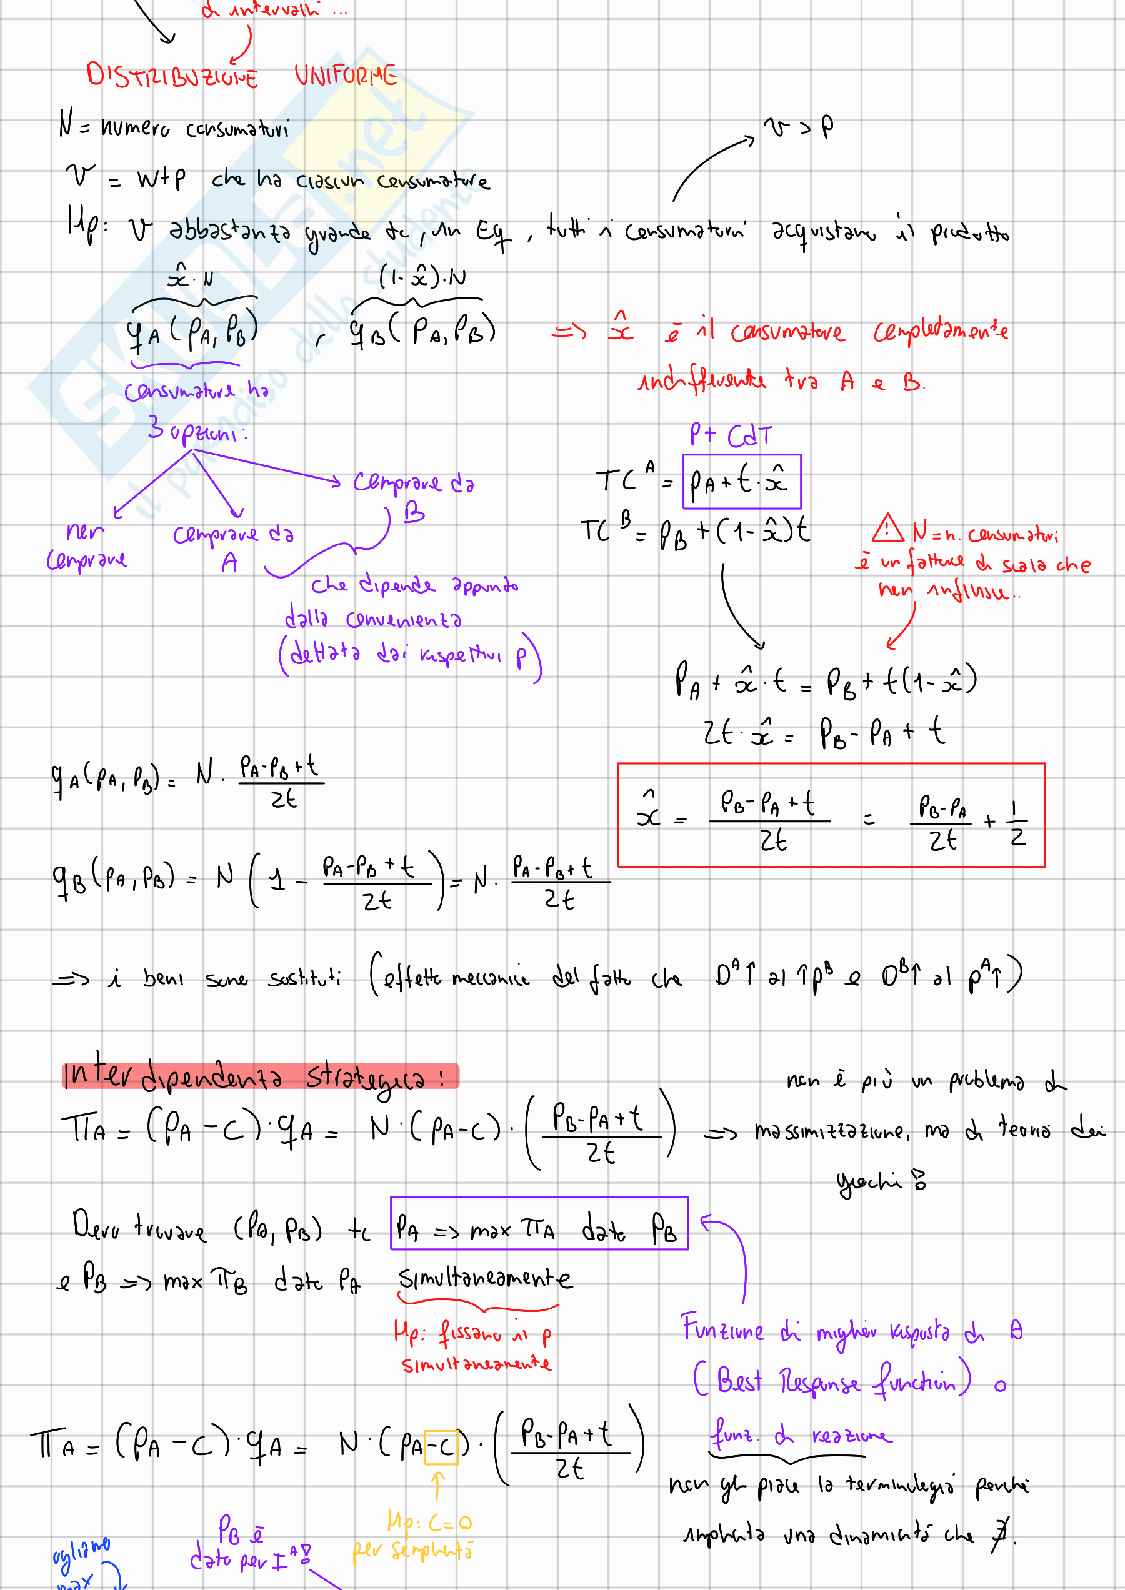 di intervalli ...
DISTRIBUZIONE UNIFORME
N = numero consumatori
v > p
v = wtp che ha ciascun consumatore
Hp: v abbastanza grande tc, in Eq, tutti i consumatori acquistano il prodotto
x̂·N (1-x̂)·N
qA(pA, pB) , qB(pA, pB) => x̂ è il consumatore completamente
indifferente tra A e B.
consumatore ha
3 opzioni:
non comprare
comprare da A
comprare da B
che dipende appunto
dalla convenienza
(dettata dai rispettivi p)
P + CdT
TC^A = pA + t·x̂
TC^B = pB + (1-x̂)t
⚠ N = n. consumatori
è un fattore di scala che
non influisce..
pA + x̂·t = pB + t(1-x̂)
2t·x̂ = pB - pA + t
x̂ = (pB - pA + t)/2t = (pB - pA)/2t + 1/2
qA(pA, pB) = N · (pA - pB + t)/2t
qB(pA, pB) = N (1 - (pA - pB + t)/2t) = N · (pA - pB + t)/2t
=> i beni sono sostituti (effetto meccanico del fatto che D^A↑ al ↑p^B e D^B↑ al p^A↑)
Interdipendenza strategica:
πA = (pA - c)·qA = N·(pA - c)·((pB - pA + t)/2t) => non è più un problema di
massimizzazione, ma di teoria dei
giochi!
Devo trovare (pA, pB) tc pA => max πA dato pB
e pB => max πB dato pA simultaneamente
Hp: fissano i p
simultaneamente
Funzione di miglior risposta di A
(Best Response function) o
funz. di reazione
non gli piace la terminologia perché
implicita una dinamicità che ∄.
πA = (pA - c)·qA = N·(pA - c)·((pB - pA + t)/2t)
Hp: c = 0
per semplicità
pB è
dato per I^A!
vogliamo
max